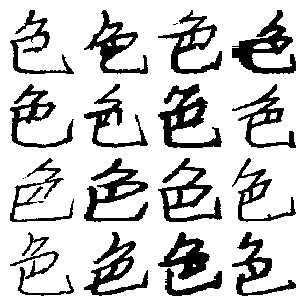 色色色色
色色色色
色色色色
色色色色